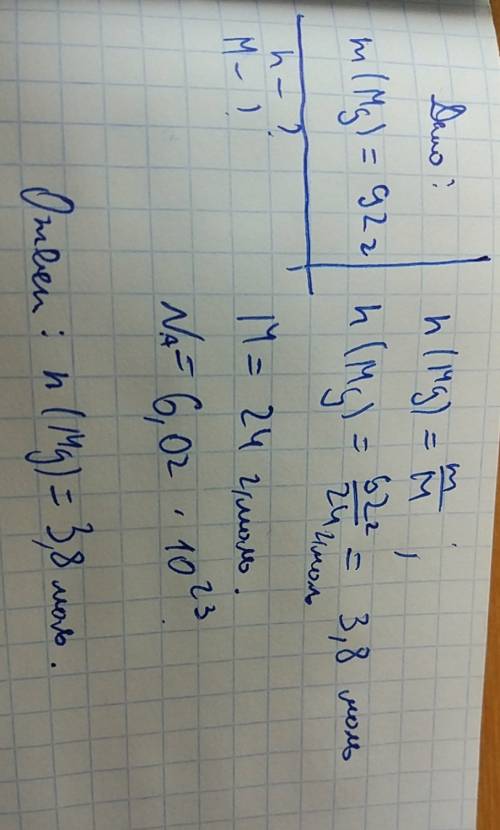 Дано:
m(Mg) = 92 г
n - ?
M - ?
n(Mg) = m/M ;
n(Mg) = 92 г / 24 г/моль = 3,8 моль
M = 24 г/моль.
N_A = 6,02 · 10^23
Ответ: n(Mg) = 3,8 моль.